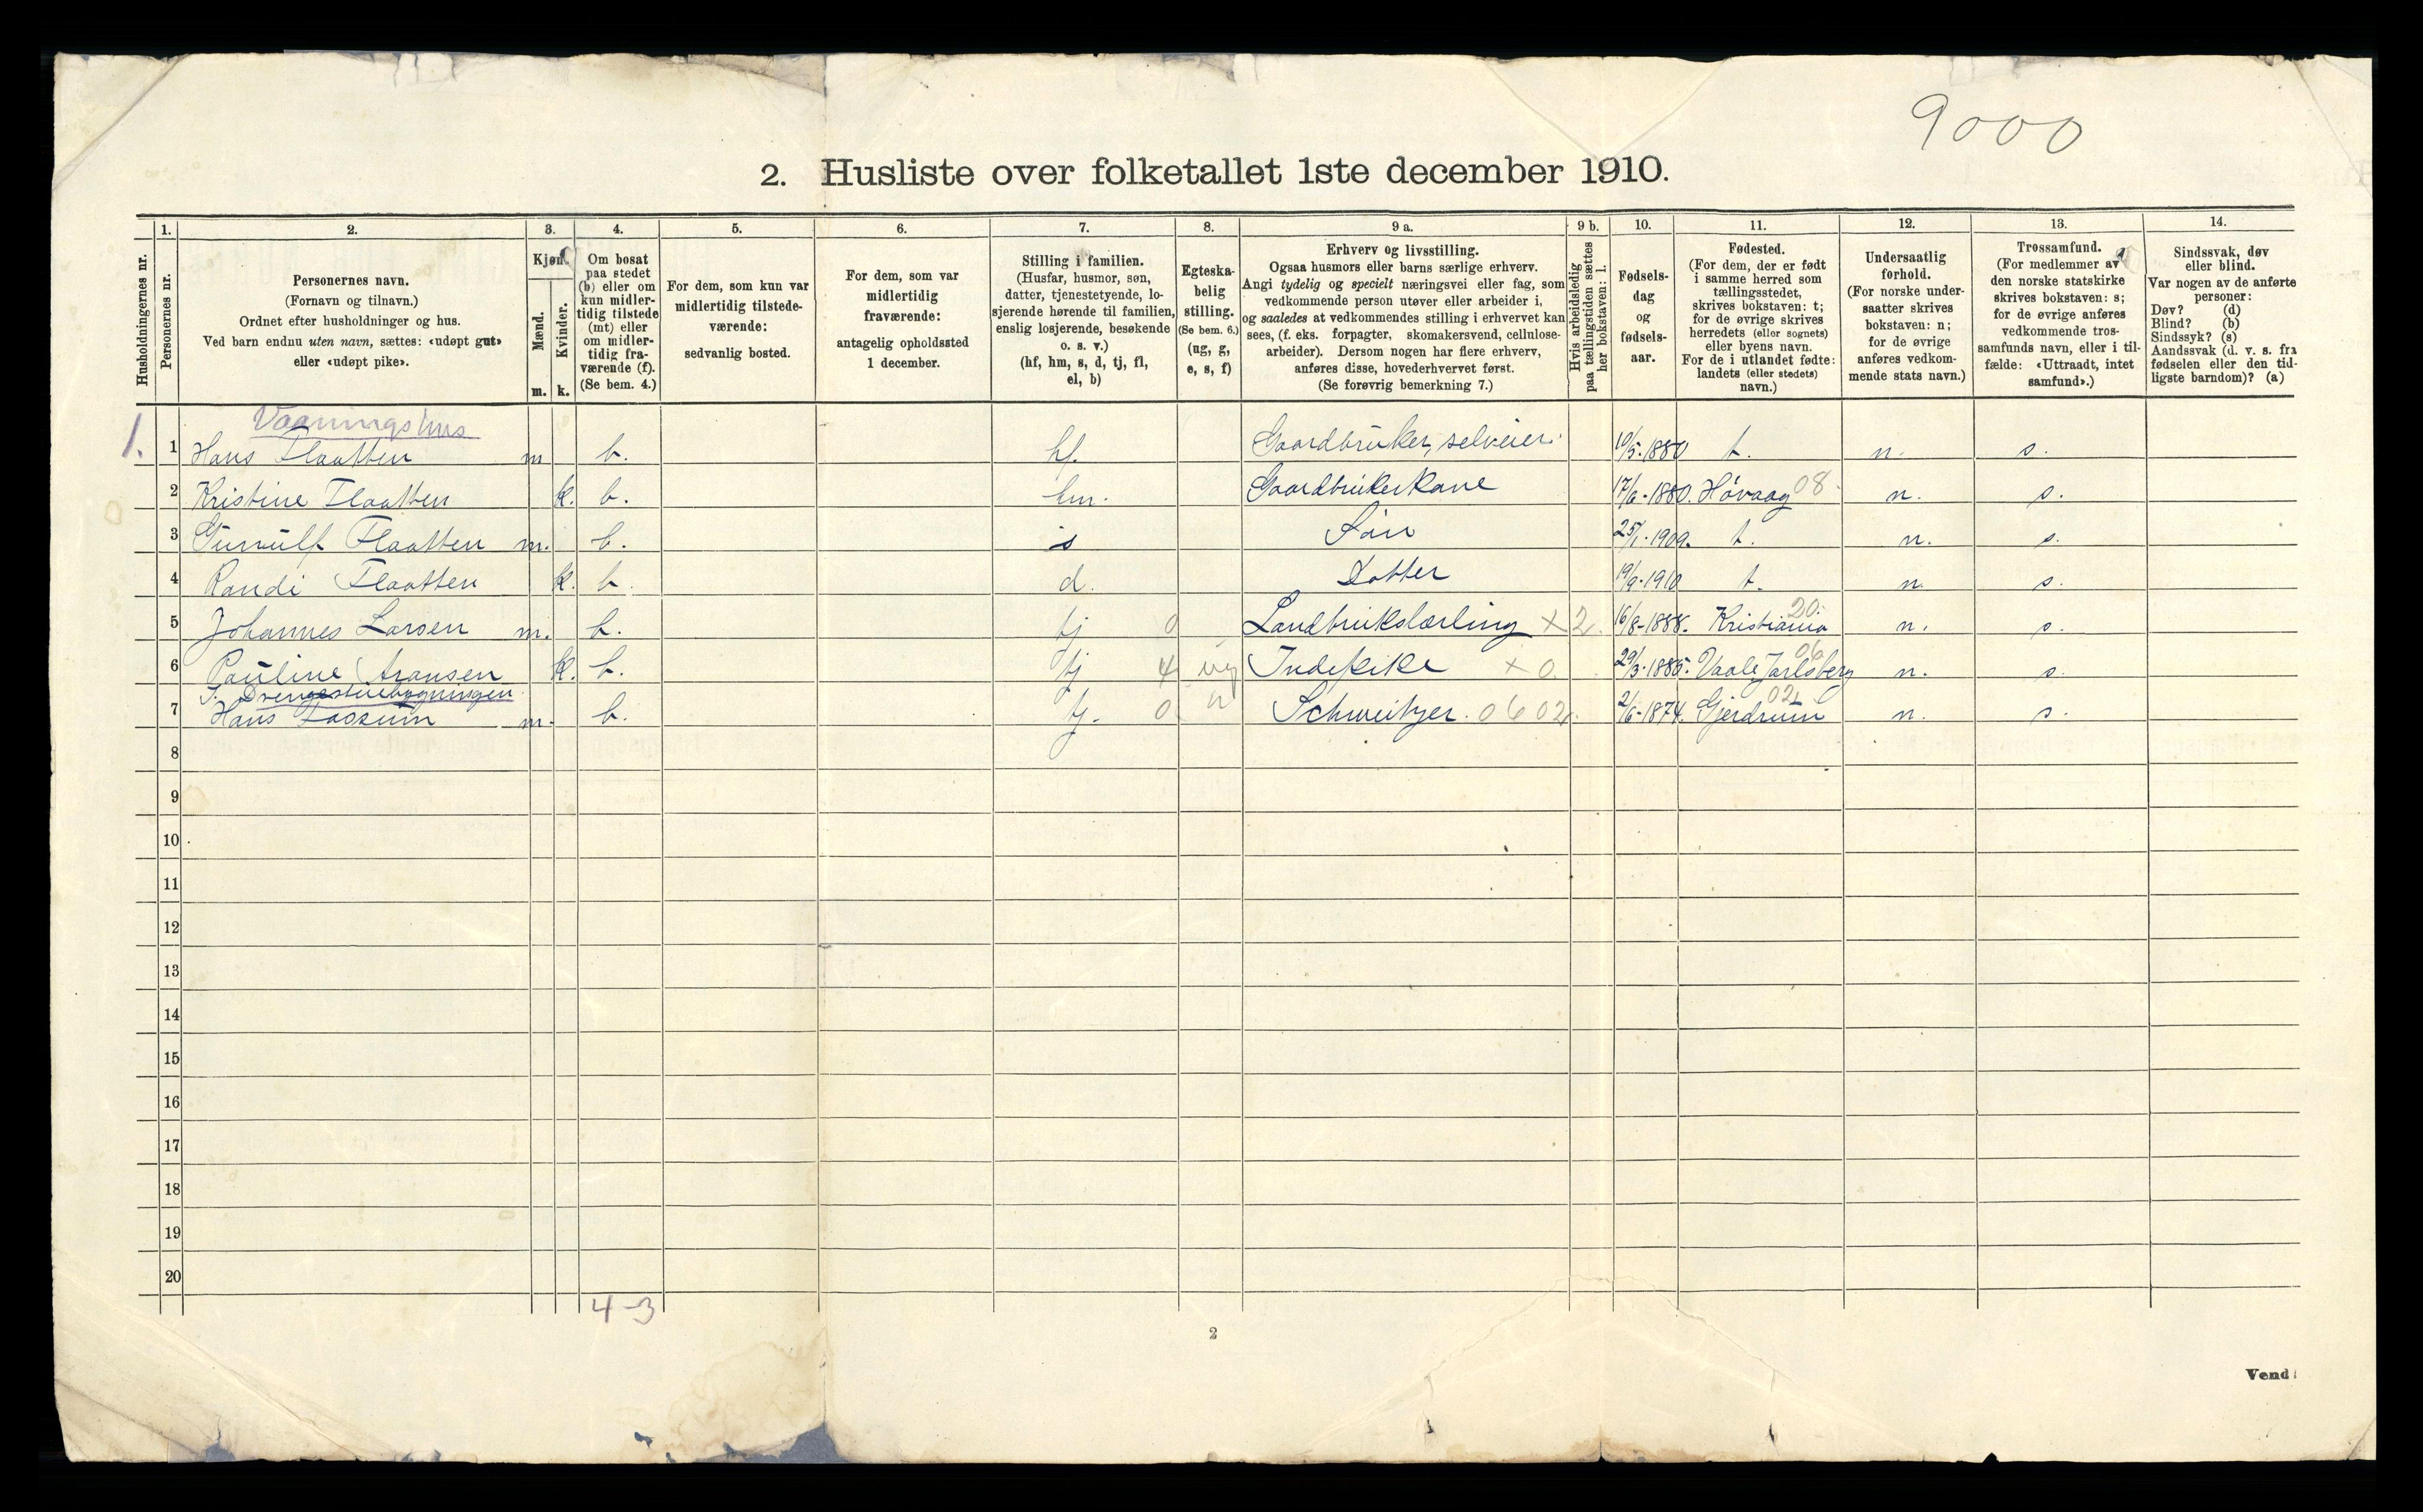 9000
2. Husliste over folketallet 1ste december 1910.
Husholdningernes nr.
1.
Personernes nr.
2.
Personernes navn.
(Fornavn og tilnavn.)
Ordnet efter husholdninger og hus.
Ved barn endnu uten navn, sættes: «udøpt gut»
eller «udøpt pike».
3.
Kjøn.
Mænd.
m.
Kvinder.
k.
4.
Om bosat
paa stedet
(b) eller om
kun midler-
tidig tilstede
(mt) eller
om midler-
tidig fra-
værende (f).
(Se bem. 4.)
5.
For dem, som kun var
midlertidig tilstede-
værende:
sedvanlig bosted.
6.
For dem, som var
midlertidig
fraværende:
antagelig opholdssted
1 december.
7.
Stilling i familien.
(Husfar, husmor, søn,
datter, tjenestetyende, lo-
sjerende hørende til familien,
enslig losjerende, besøkende
o. s. v.)
(hf, hm, s, d, tj, fl,
el, b)
8.
Egteska-
belig
stilling.
(Se bem. 6.)
(ug, g,
e, s, f)
9 a.
Erhverv og livsstilling.
Ogsaa husmors eller barns særlige erhverv.
Angi tydelig og specielt næringsvei eller fag, som
vedkommende person utøver eller arbeider i,
og saaledes at vedkommendes stilling i erhvervet kan
sees, (f. eks. forpagter, skomakersvend, cellulose-
arbeider). Dersom nogen har flere erhverv,
anføres disse, hovederhvervet først.
(Se forøvrig bemerkning 7.)
9 b.
Hvis arbeidsledig
paa tællingstiden sættes
her bokstaven: l.
10.
Fødsels-
dag
og
fødsels-
aar.
11.
Fødested.
(For dem, der er født
i samme herred som
tællingsstedet,
skrives bokstaven: t;
for de øvrige skrives
herredets (eller sognets)
eller byens navn.
For de i utlandet fødte:
landets (eller stedets)
navn.)
12.
Undersaatlig
forhold.
(For norske under-
saatter skrives
bokstaven: n;
for de øvrige
anføres vedkom-
mende stats navn.)
13.
Trossamfund.
(For medlemmer av
den norske statskirke
skrives bokstaven: s;
for de øvrige anføres
vedkommende tros-
samfunds navn, eller i til-
fælde: «Uttraadt, intet
samfund».)
14.
Sindssvak, døv
eller blind.
Var nogen av de anførte
personer:
Døv? (d)
Blind? (b)
Sindssyk? (s)
Aandssvak (d. v. s. fra
fødselen eller den tid-
ligste barndom)? (a)
Vaaningshus
1. 1 Hans Flaatten m b. hf. Gaardbruker, selveier. 10/5-1880 t. n. s.
2 Kristine Flaatten k. b. hm. Gaardbrukerkone 17/6-1880. Høvaag 08 n. s.
3 Gunnulf Flaatten m. b. s Søn 25/1-1909. t. n. s.
4 Randi Flaatten k. b. d. Datter 19/9-1910 t. n. s.
5 Johannes Larsen m. b. tj 0 Landbrukslærling X 2. 16/8-1888. Kristiania 20. n. s.
6 Pauline Aransen k. b. tj 4 ug Indepike X 0 29/3-1885. Vaale Jarlsberg 06 n. s.
I Drengestuebygningen
7 Hans Fossum m. b. tj. 0 Schweitzer. 0602. 2/6-1874. Gjerdrum 02 n. s.
8
9
10
11
12
13
14
15
16
17
18
19
20
4-3
2
Vend!